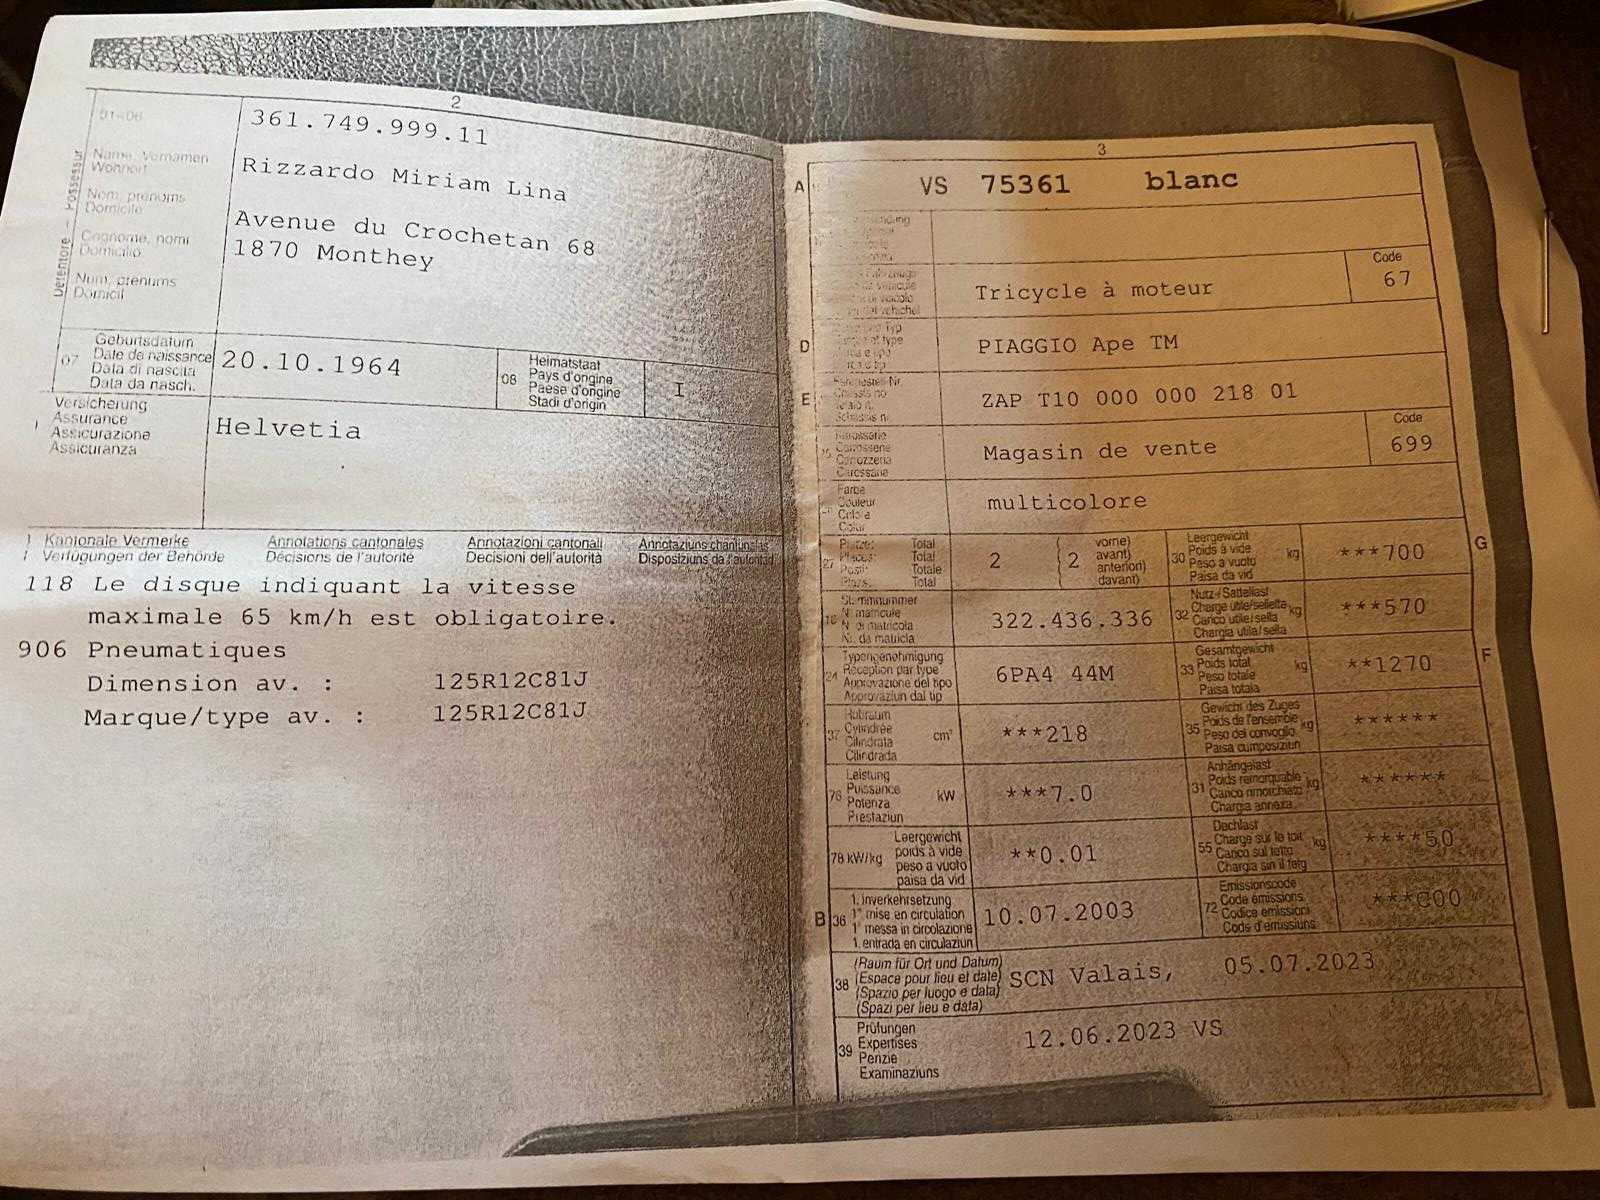 2
01-06
361.749.999.11
Detentore - Possessur
Name, Vornamen
Wohnort
Rizzardo Miriam Lina
Nom, prénoms
Domicile
Avenue du Crochetan 68
Cognome, nomi
Domicilio
1870 Monthey
Num, prenums
Domicil
07
Geburtsdatum
Date de naissance
Data di nascita
Data da nasch.
20.10.1964
08
Heimatstaat
Pays d'origine
Paese d'origine
Stadi d'origin
I
Versicherung
Assurance
Assicurazione
Assicuranza
Helvetia
Kantonale Vermerke
Verfügungen der Behörde
Annotations cantonales
Décisions de l'autorité
Annotazioni cantonali
Decisioni dell'autorità
Annotaziuns chantunalas
Disposiziuns da l'autoritad
118 Le disque indiquant la vitesse
maximale 65 km/h est obligatoire.
906 Pneumatiques
Dimension av. : 125R12C81J
Marque/type av. : 125R12C81J
3
A
VS 75361 blanc
Tricycle à moteur
Code
67
D
PIAGGIO Ape TM
E
ZAP T10 000 000 218 01
Carrozzeria
Magasin de vente
Code
699
Farbe
Couleur
Colore
Colur
multicolore
27
Total
Total
Totale
Total
2
( 2
vorne)
avant)
anteriori)
davant)
30
Leergewicht
Poids à vide
Peso a vuoto
Paisa da vid
kg
***700
G
18
Stammnummer
N° matricule
N. di matricola
Nr. da matricla
322.436.336
32
Nutz-/Sattellast
Charge utile/sellette
Carico utile/sella
Chargia utila/sella
kg
***570
24
Typengenehmigung
Réception par type
Approvazione del tipo
Approvaziun dal tip
6PA4 44M
33
Gesamtgewicht
Poids total
Peso totale
Paisa totala
kg
**1270
F
37
Hubraum
Cylindrée
Cilindrata
Cilindrada
cm³
***218
35
Gewicht des Zuges
Poids de l'ensemble
Peso del convoglio
Paisa cumposiziun
kg
******
76
Leistung
Puissance
Potenza
Prestaziun
kW
***7.0
31
Anhängelast
Poids remorquable
Carico rimorchiato
Chargia annexa
kg
******
78 kW/kg
Leergewicht
poids à vide
peso a vuoto
paisa da vid
**0.01
55
Dachlast
Charge sur le toit
Carico sul tetto
Chargia sin il tetg
kg
****50
B
36
1. Inverkehrsetzung
1re mise en circulation
1a messa in circolazione
1. entrada en circulaziun
10.07.2003
72
Emissionscode
Code émissions
Codice emissioni
Code d'emissiuns
38
(Raum für Ort und Datum)
(Espace pour lieu et date)
(Spazio per luogo e data)
(Spazi per lieu e data)
SCN Valais, 05.07.2023
39
Prüfungen
Expertises
Perizie
Examinaziuns
12.06.2023 VS